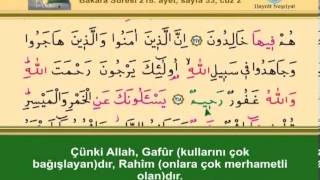 Bakara Suresi 218. ayet, sayfa 33, cüz 2
Hayrât Neşriyat
هُمْ فِيهَا خَالِدُونَ ۝ اِنَّ الَّذِينَ اٰمَنُوا وَالَّذِينَ هَاجَرُوا
وَجَاهَدُوا فِي سَبِيلِ اللّٰهِ اُولٰٓئِكَ يَرْجُونَ رَحْمَتَ اللّٰهِ
وَاللّٰهُ غَفُورٌ رَحِيمٌ ۝ يَسْـَٔلُونَكَ عَنِ الْخَمْرِ وَالْمَيْسِرِ
Çünki Allah, Gafûr (kullarını çok
bağışlayan)dır, Rahîm (onlara çok merhametli
olan)dır.